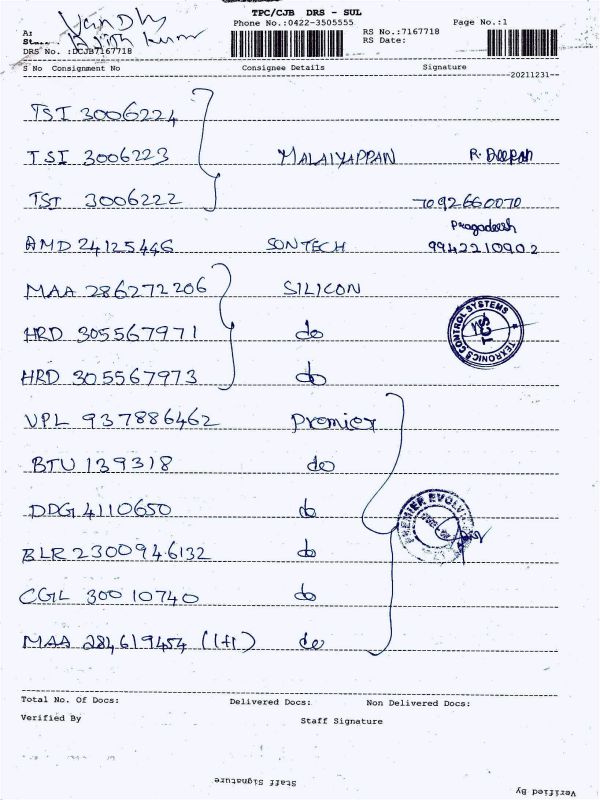 TPC/CJB DRS - SUL
Phone No.:0422-3505555
Page No.:1
RS No.:7167718
RS Date:
Vandh
Ajith kumar
DRS No. :DCJB7167718
S No Consignment No Consignee Details Signature
--20211231--
TSI 3006224
TSI 3006223 MALAIYAPPAN R. Deepan
TSI 3006222 7092660070
Pragadeesh
AMD 24125446 SONTECH 9942210902
MAA 286272206 SILICON
TEKRONICS CONTROL SYSTEMS
TCS
HRD 305567971 do
HRD 305567973 do
VPL 937886462 Premier
BTU 139318 do
PREMIER EVOLVI
DDG 4110650 do
BLR 2300946132 do
CGL 30010740 do
MAA 284619454 (1+1) do
Total No. Of Docs: Delivered Docs: Non Delivered Docs:
Verified By Staff Signature
Staff Signature
Verified By